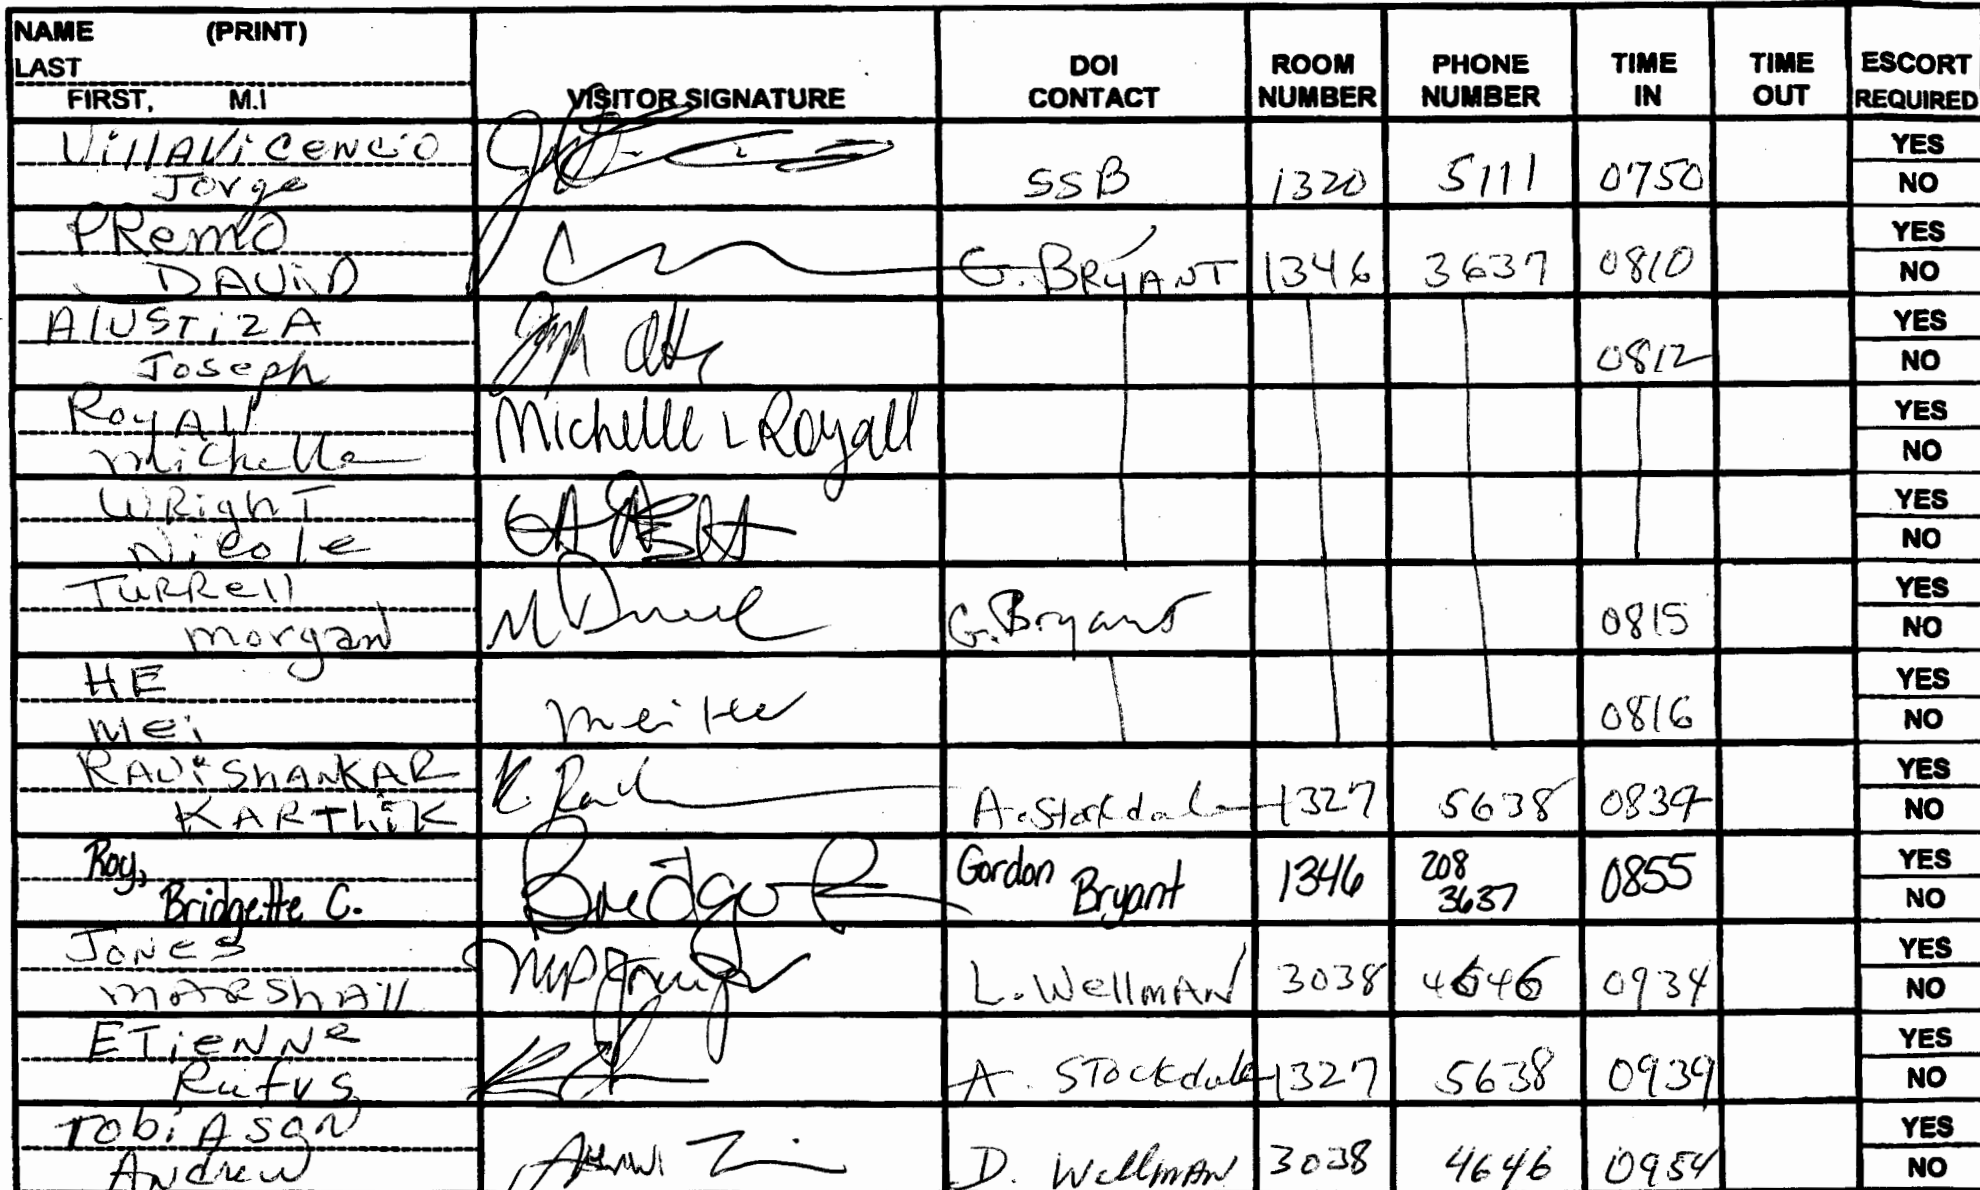 NAME (PRINT)
LAST
FIRST, M.I
VISITOR SIGNATURE
DOI CONTACT
ROOM NUMBER
PHONE NUMBER
TIME IN
TIME OUT
ESCORT REQUIRED
VillAVicencio
Jorge
SSB 1320 5111 0750
YES
NO
PRemo
DAViD
G. BRYANT 1346 3637 0810
YES
NO
AlUSTizA
Joseph
0812
YES
NO
RoyAll
Michelle
Michelle L Royall
YES
NO
WRighT
Nicole
YES
NO
TuRRell
morgan
G. Bryant
0815
YES
NO
HE
Mei
Mei He
0816
YES
NO
RAViShANKAR
KARThiK
A. Stockdale 1327 5638 0839
YES
NO
Roy,
Bridgette C.
Gordon Bryant 1346 208 3637 0855
YES
NO
JoNes
mARShAll
L. WellmAN 3038 4646 0934
YES
NO
ETieNNe
Rufus
A. STockdale 1327 5638 0939
YES
NO
TobiAson
Andrew
D. WellmAN 3038 4646 0954
YES
NO